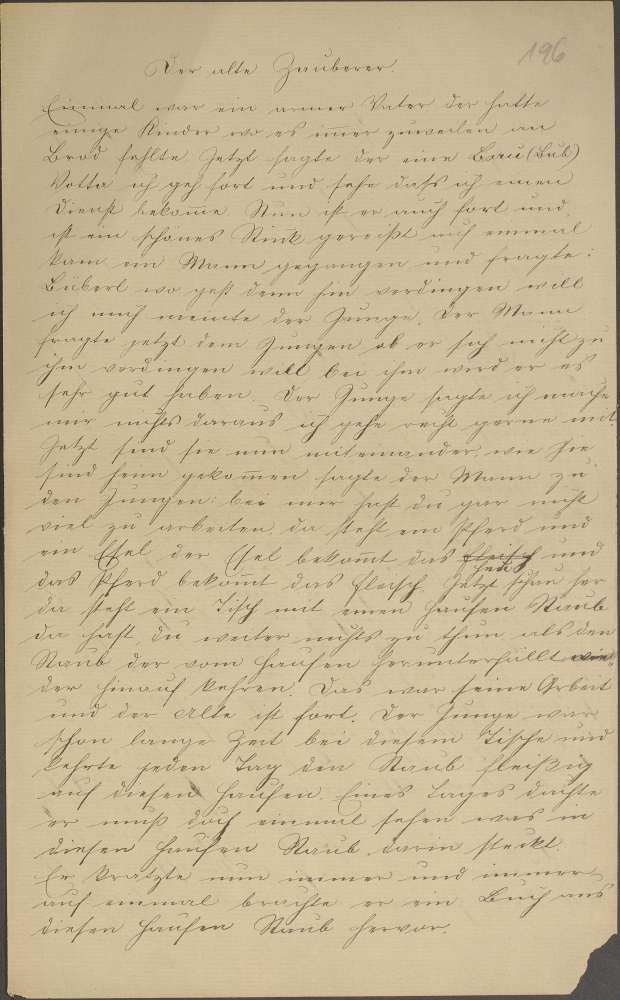 196
Der alte Zauberer.
Einmal war ein armer Vater der hatte
einige Kinder wo es im̅er zuweilen an
Brod fehlte. Jetzt sagte der eine (Bub)
Votta ich geh fort und sehe daß ich einen
Dienst bekom̅e. Nun ist er auch fort und
ist ein schönes Stück gereißt auf einmal
kam ein Mann gegangen und fragte:
Büberl wo gehst denn hin verdingen will
ich mich meinte der Junge. Der Mann
fragte jetzt dem Jungen ob er sich nicht zu
ihm verdingen will bei ihm wird er es
sehr gut haben. Der Junge sagte ich mache
mir nichts daraus ich gehe recht gerne mit.
Jetzt sind sie nun miteinander, wie sie
sind heim gekom̅en sagte der Mann zu
den Jungen: bei mir hast du gar nicht
viel zu arbeiten, da steht ein Pferd und
ein Esel der Esel bekom̅t das Fleisch und
Heu
das Pferd bekom̅t das Fleisch. Jetzt schau her
da steht ein Tisch mit einen Haufen Staub
da hast du weiter nichts zu thun als den
Staub der vom Haufen herunterfällt wie
der hinauf kehren. Das war seine Arbeit
und der Alte ist fort. Der Junge war
schon lange Zeit bei diesem Tische und
kehrte jeden Tag den Staub fleißig
auf diesen Haufen. Eines Tages dachte
er muß doch einmal sehen was in
diesen Haufen Staub darin steckt.
Er kratzte nun immer und immer
auf einmal brachte er ein Buch aus
diesen Haufen Staub hervor.